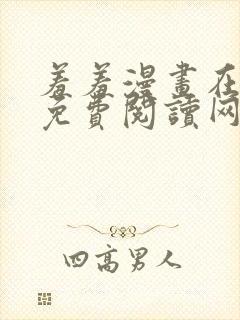 羞羞漫畫在
免費閱讀网
四高男人